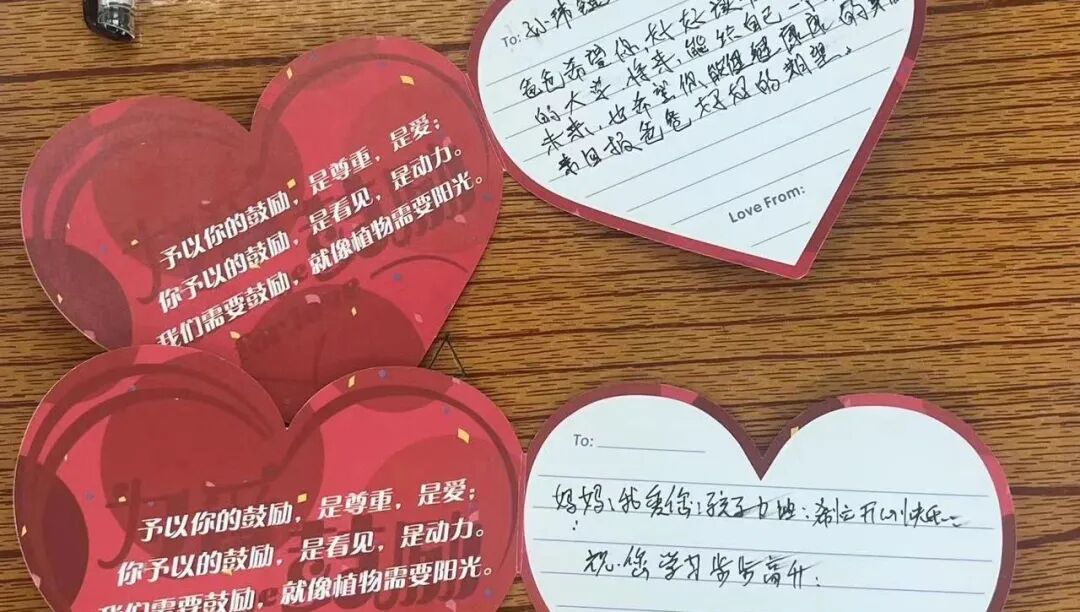 予以你的鼓励，是尊重，是爱；
你予以的鼓励，是看见，是动力。
我们需要鼓励，就像植物需要阳光。
To: 孙
爸爸希望你，好好读
的大学，将来，能给自己一个
未来，也希望你能健康的
来回报爸爸对妈的期望。
Love From:
予以你的鼓励，是尊重，是爱；
你予以的鼓励，是看见，是动力。
我们需要鼓励，就像植物需要阳光。
To:
妈妈：我爱你：孩子 希望开心快乐
祝 您学习步步高升：